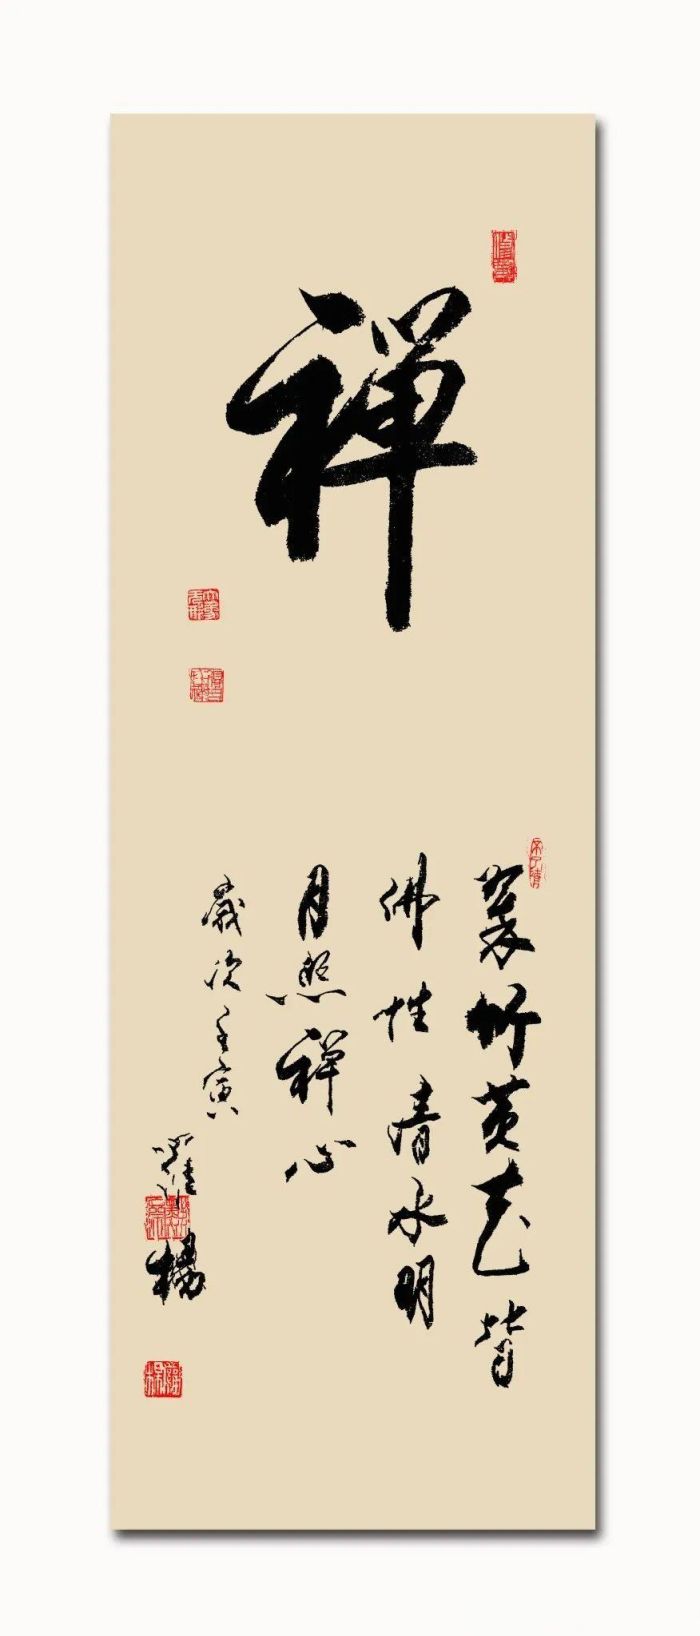 禅
翠竹黄花皆
佛性清水明
月照禅心
岁次壬寅
罗杨